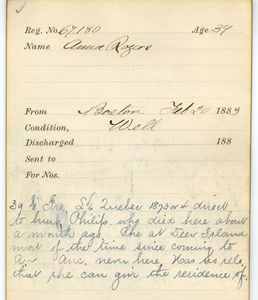 Reg. No. 67180 Age 39
Name Anna Rogers
From Boston Feb 20 1883
Condition, Well
Discharged 188
Sent to
For Nos.
39 S. Ire, Quebec 1873 or 4 direct
to husb, Philip, who died here about
a month ago. She at Deer Island
most of the time since coming to
Am Anc. never here, Has no rels,
that she can give the residence of.